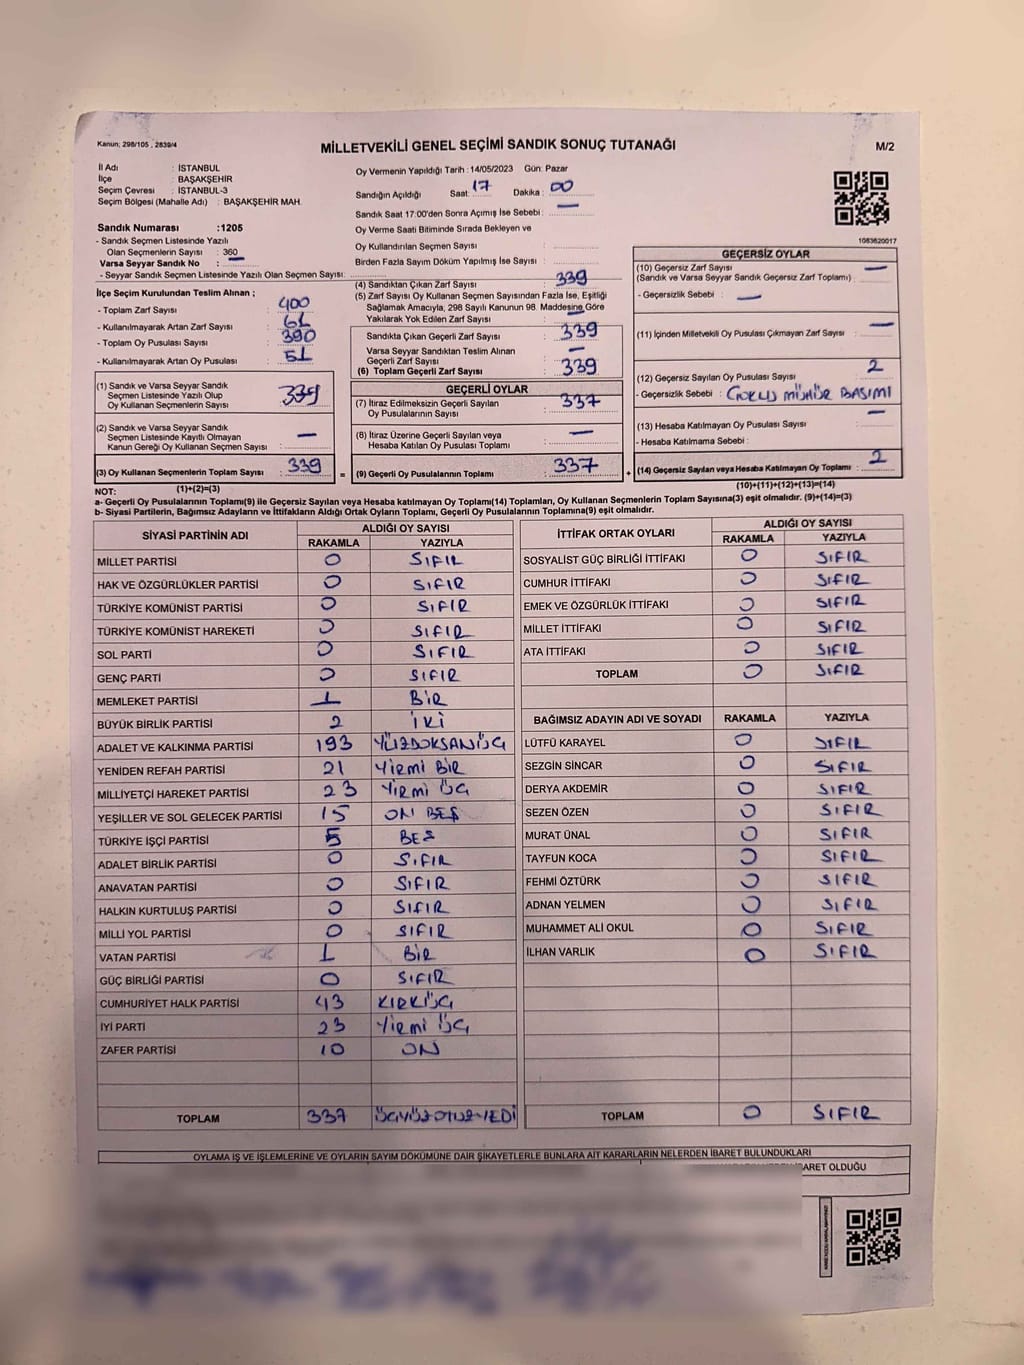 Kanun; 298/105 , 2839/4
MİLLETVEKİLİ GENEL SEÇİMİ SANDIK SONUÇ TUTANAĞI
M/2
İl Adı : İSTANBUL
İlçe : BAŞAKŞEHİR
Seçim Çevresi : İSTANBUL-3
Seçim Bölgesi (Mahalle Adı) : BAŞAKŞEHİR MAH.
Oy Vermenin Yapıldığı Tarih : 14/05/2023 Gün: Pazar
Sandığın Açıldığı Saat: 17 Dakika : 00
Sandık Saat 17:00'den Sonra Açımış İse Sebebi : —
Oy Verme Saati Bitiminde Sırada Bekleyen ve
Oy Kullandırılan Seçmen Sayısı :
Birden Fazla Sayım Döküm Yapılmış İse Sayısı :
1083620017
Sandık Numarası :1205
- Sandık Seçmen Listesinde Yazılı
Olan Seçmenlerin Sayısı : 360
Varsa Seyyar Sandık No : —
- Seyyar Sandık Seçmen Listesinde Yazılı Olan Seçmen Sayısı:
İlçe Seçim Kurulundan Teslim Alınan ;
- Toplam Zarf Sayısı : 400
- Kullanılmayarak Artan Zarf Sayısı : 61
- Toplam Oy Pusulası Sayısı : 390
- Kullanılmayarak Artan Oy Pusulası : 51
(1) Sandık ve Varsa Seyyar Sandık
Seçmen Listesinde Yazılı Olup
Oy Kullanan Seçmenlerin Sayısı : 339
(2) Sandık ve Varsa Seyyar Sandık
Seçmen Listesinde Kayıtlı Olmayan
Kanun Gereği Oy Kullanan Seçmen Sayısı : —
(3) Oy Kullanan Seçmenlerin Toplam Sayısı : 339
(1)+(2)=(3)
(4) Sandıktan Çıkan Zarf Sayısı : 339
(5) Zarf Sayısı Oy Kullanan Seçmen Sayısından Fazla İse, Eşitliği
Sağlamak Amacıyla, 298 Sayılı Kanunun 98. Maddesine Göre
Yakılarak Yok Edilen Zarf Sayısı : —
Sandıkta Çıkan Geçerli Zarf Sayısı : 339
Varsa Seyyar Sandıktan Teslim Alınan
Geçerli Zarf Sayısı : —
(6) Toplam Geçerli Zarf Sayısı : 339
GEÇERLİ OYLAR
(7) İtiraz Edilmeksizin Geçerli Sayılan
Oy Pusulalarının Sayısı : 337
(8) İtiraz Üzerine Geçerli Sayılan veya
Hesaba Katılan Oy Pusulası Toplamı : —
= (9) Geçerli Oy Pusulalarının Toplamı : 337
GEÇERSİZ OYLAR
(10) Geçersiz Zarf Sayısı : —
(Sandık ve Varsa Seyyar Sandık Geçersiz Zarf Toplamı)
- Geçersizlik Sebebi : —
(11) İçinden Milletvekili Oy Pusulası Çıkmayan Zarf Sayısı : —
(12) Geçersiz Sayılan Oy Pusulası Sayısı : 2
- Geçersizlik Sebebi : MÜHÜR BASIMI
(13) Hesaba Katılmayan Oy Pusulası Sayısı : —
- Hesaba Katılmama Sebebi :
+ (14) Geçersiz Sayılan veya Hesaba Katılmayan Oy Toplamı : 2
(10)+(11)+(12)+(13)=(14)
NOT:
a- Geçerli Oy Pusulalarının Toplamı(9) ile Geçersiz Sayılan veya Hesaba katılmayan Oy Toplamı(14) Toplamları, Oy Kullanan Seçmenlerin Toplam Sayısına(3) eşit olmalıdır. (9)+(14)=(3)
b- Siyasi Partilerin, Bağımsız Adayların ve İttifakların Aldığı Ortak Oyların Toplamı, Geçerli Oy Pusulalarının Toplamına(9) eşit olmalıdır.
SİYASİ PARTİNİN ADI ALDIĞI OY SAYISI
RAKAMLA YAZIYLA
MİLLET PARTİSİ 0 SIFIR
HAK VE ÖZGÜRLÜKLER PARTİSİ 0 SIFIR
TÜRKİYE KOMÜNİST PARTİSİ 0 SIFIR
TÜRKİYE KOMÜNİST HAREKETİ 0 SIFIR
SOL PARTİ 0 SIFIR
GENÇ PARTİ 0 SIFIR
MEMLEKET PARTİSİ 1 BİR
BÜYÜK BİRLİK PARTİSİ 2 İKİ
ADALET VE KALKINMA PARTİSİ 193 YÜZDOKSANÜÇ
YENİDEN REFAH PARTİSİ 21 YİRMİ BİR
MİLLİYETÇİ HAREKET PARTİSİ 23 YİRMİ ÜÇ
YEŞİLLER VE SOL GELECEK PARTİSİ 15 ON BEŞ
TÜRKİYE İŞÇİ PARTİSİ 5 BEŞ
ADALET BİRLİK PARTİSİ 0 SIFIR
ANAVATAN PARTİSİ 0 SIFIR
HALKIN KURTULUŞ PARTİSİ 0 SIFIR
MİLLİ YOL PARTİSİ 0 SIFIR
VATAN PARTİSİ 1 BİR
GÜÇ BİRLİĞİ PARTİSİ 0 SIFIR
CUMHURİYET HALK PARTİSİ 43 KIRKÜÇ
İYİ PARTİ 23 YİRMİ ÜÇ
ZAFER PARTİSİ 10 ON
TOPLAM 337 ÜÇYÜZOTUZYEDİ
İTTİFAK ORTAK OYLARI ALDIĞI OY SAYISI
RAKAMLA YAZIYLA
SOSYALİST GÜÇ BİRLİĞİ İTTİFAKI 0 SIFIR
CUMHUR İTTİFAKI 0 SIFIR
EMEK VE ÖZGÜRLÜK İTTİFAKI 0 SIFIR
MİLLET İTTİFAKI 0 SIFIR
ATA İTTİFAKI 0 SIFIR
TOPLAM 0 SIFIR
BAĞIMSIZ ADAYIN ADI VE SOYADI RAKAMLA YAZIYLA
LÜTFÜ KARAYEL 0 SIFIR
SEZGİN SİNCAR 0 SIFIR
DERYA AKDEMİR 0 SIFIR
SEZEN ÖZEN 0 SIFIR
MURAT ÜNAL 0 SIFIR
TAYFUN KOCA 0 SIFIR
FEHMİ ÖZTÜRK 0 SIFIR
ADNAN YELMEN 0 SIFIR
MUHAMMET ALİ OKUL 0 SIFIR
İLHAN VARLIK 0 SIFIR
TOPLAM 0 SIFIR
OYLAMA İŞ VE İŞLEMLERİNE VE OYLARIN SAYIM DÖKÜMÜNE DAİR ŞİKAYETLERLE BUNLARA AİT KARARLARIN NELERDEN İBARET BULUNDUKLARI
OLDUĞU